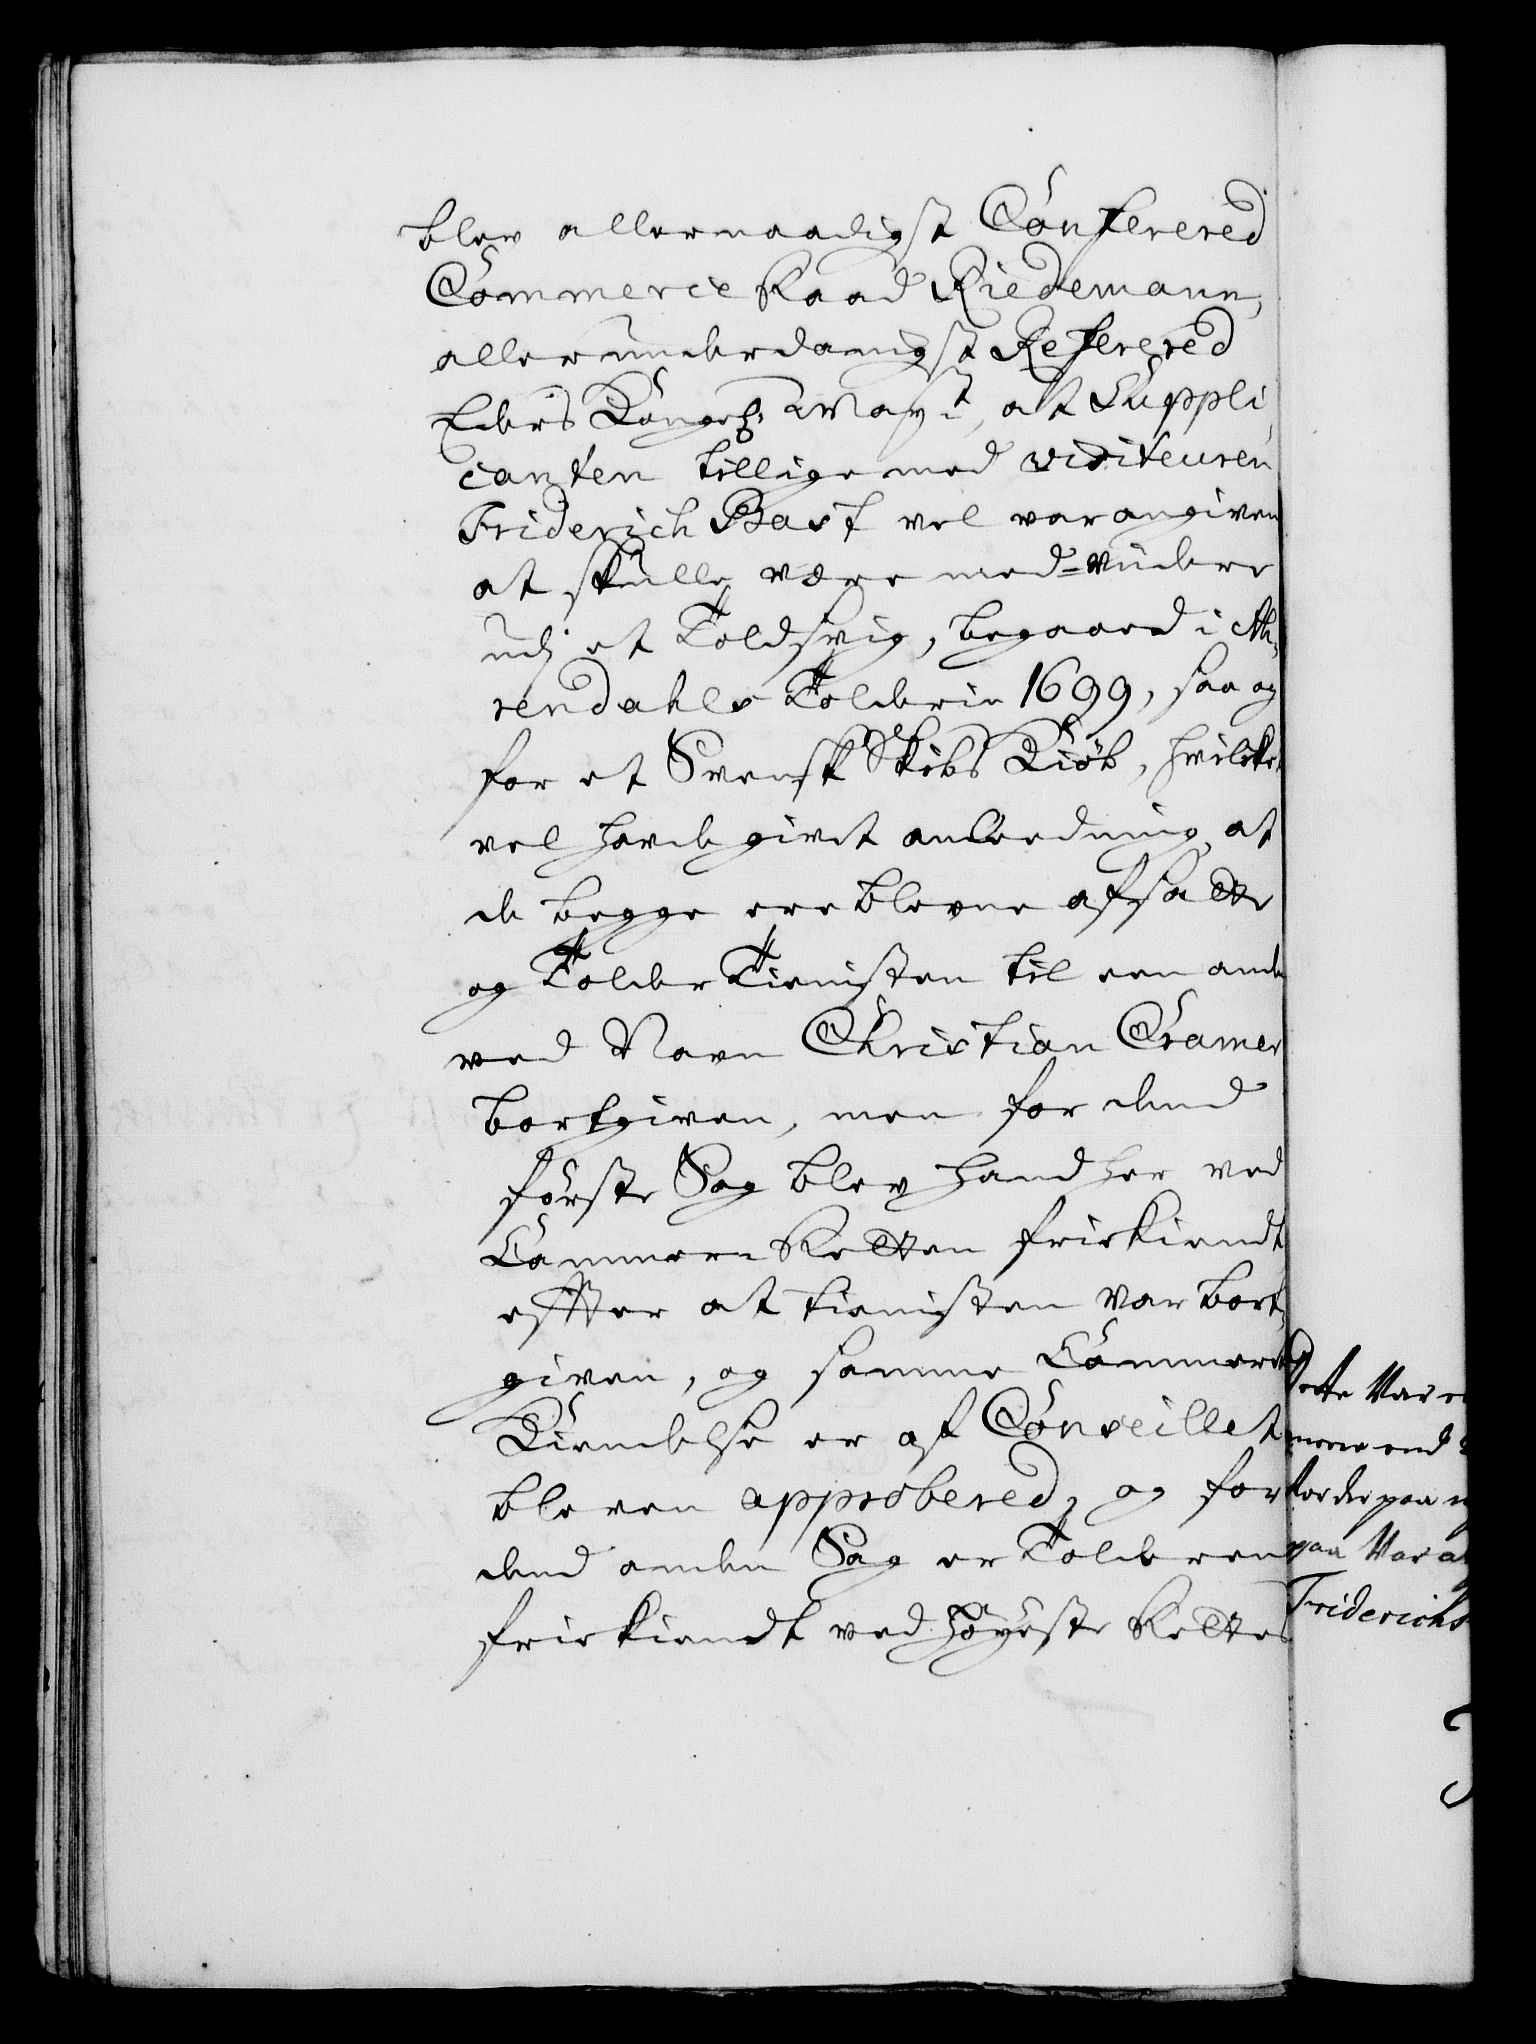 blev allernaadigst Conferered
Commercie Raad Riedemann,
allerunderdanigst Referered
Eders Kongel: May:t, at Suppli
canten tillige med visiteuren
Friderich Bast vel var angiven
at skulle være med-videre
udj et Toldsvig, begaaed i Ah,
rendahls Tolderie 1699, saa og
for et Svensk Skibs Kiöb, hvilket
vel havde givet anledning, at
de begge ere blevne afsatte
og Tolder Tienisten til een anden
ved Navn Christian Cramer
bortgiven, men for dend
förste Sag blev hand her ved
Cammer-Retten friekiendt
effter at tienisten var bort,
given, og samme Cammer
Kiendelse er af Conseillet
bleven approbered, og for
dend anden Sag er Tolderen
friekiendt ved Høyeste Rettes
dette Var
meere end
for der paa
paa Var
Friderichs